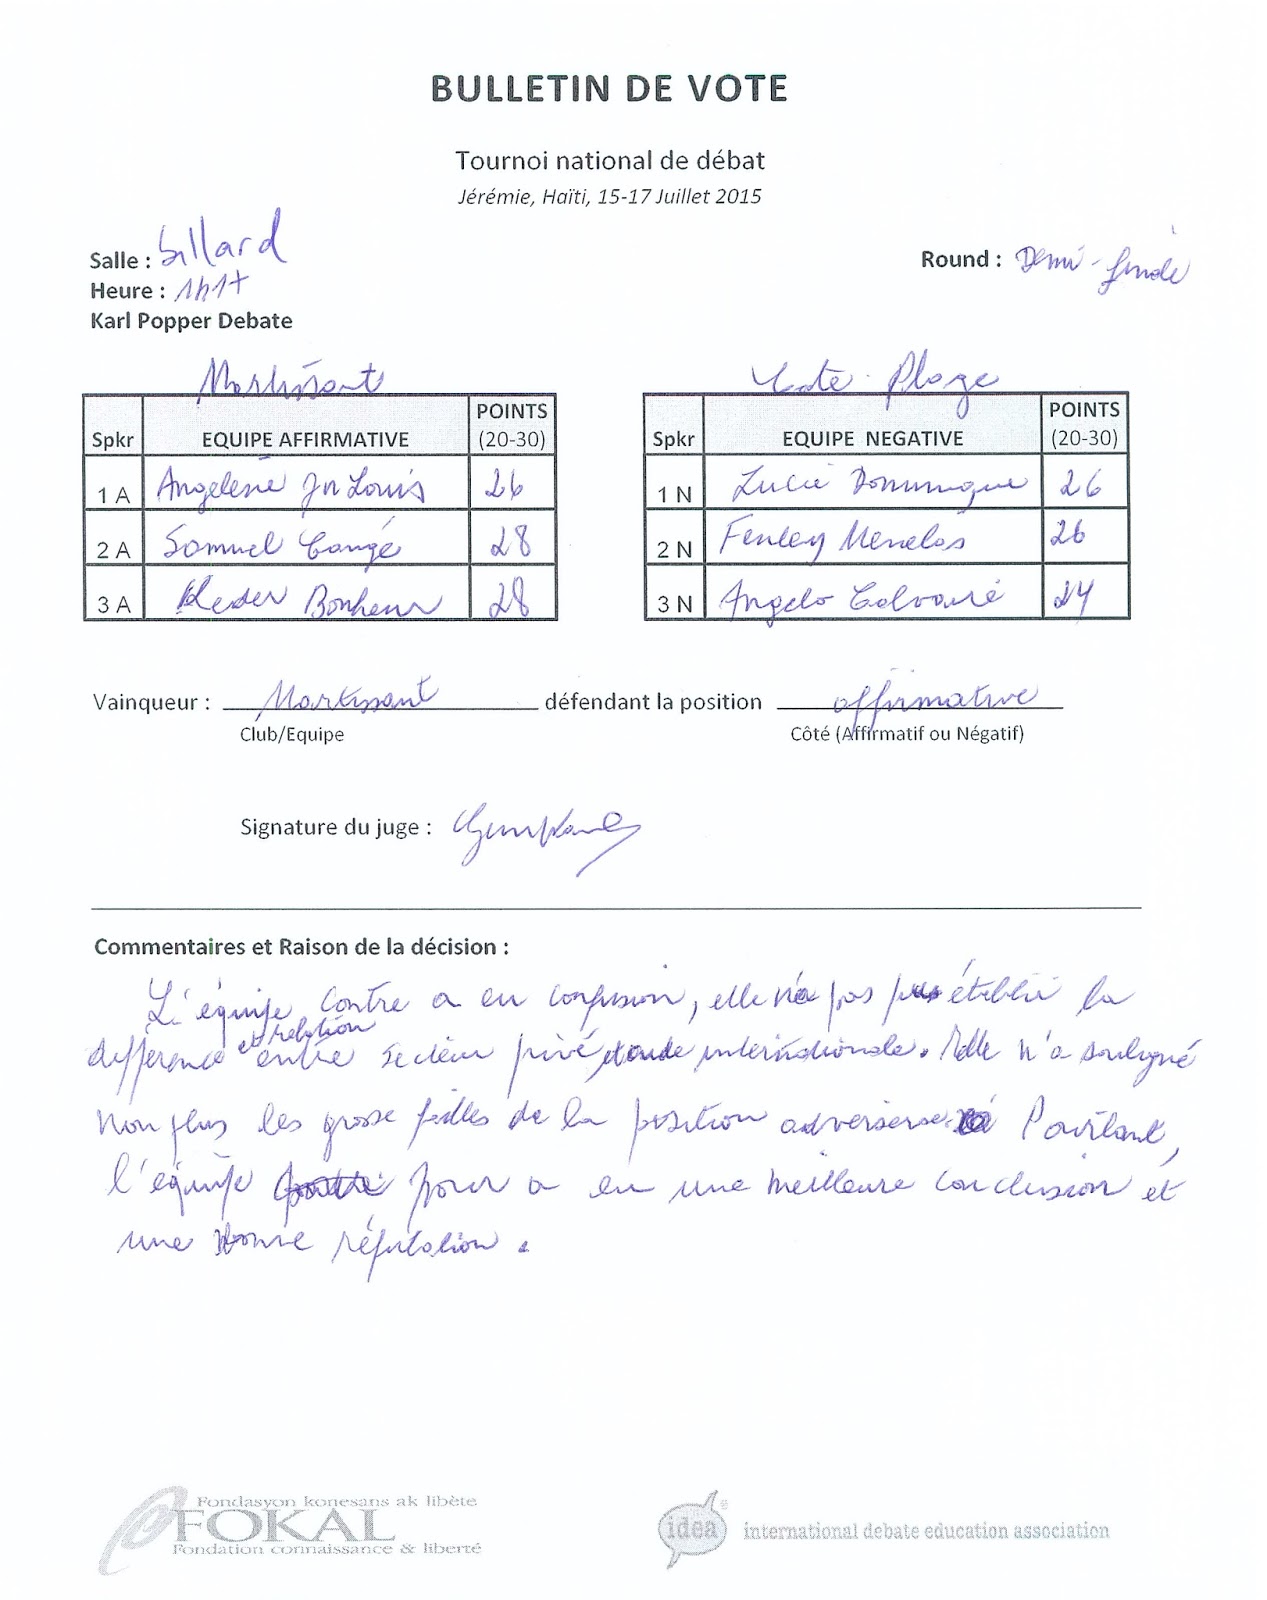 BULLETIN DE VOTE
Tournoi national de débat
Jérémie, Haïti, 15-17 Juillet 2015
Salle : billard
Round : Demi-finale
Heure : 1h17
Karl Popper Debate
Martissant
Cote-Plage
Spkr EQUIPE AFFIRMATIVE POINTS (20-30)
1 A Angelene Jn Louis 26
2 A Samuel Cangé 28
3 A Bonheur 28
Spkr EQUIPE NEGATIVE POINTS (20-30)
1 N Lucie Dominique 26
2 N Fenley Menelas 26
3 N Angelo Calvaire 24
Vainqueur : Martissant défendant la position affirmative
Club/Equipe Côté (Affirmatif ou Négatif)
Signature du juge :
Commentaires et Raison de la décision :
L'équipe contre a eu confusion, elle n'a pas établir la
différence et relation entre secteur privé internationale. Elle n'a souligné
non plus les grosse failles de la position adverserse. Pourtant,
l'équipe pour a eu une meilleure conclusion et
une bonne réfutation.
Fondasyon konesans ak libète
FOKAL
Fondation connaissance & liberté
idea international debate education association